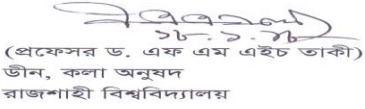 ১৮.১.১৮
(প্রফেসর ড. এফ এম এইচ তাকী)
ডীন, কলা অনুষদ
রাজশাহী বিশ্ববিদ্যালয়